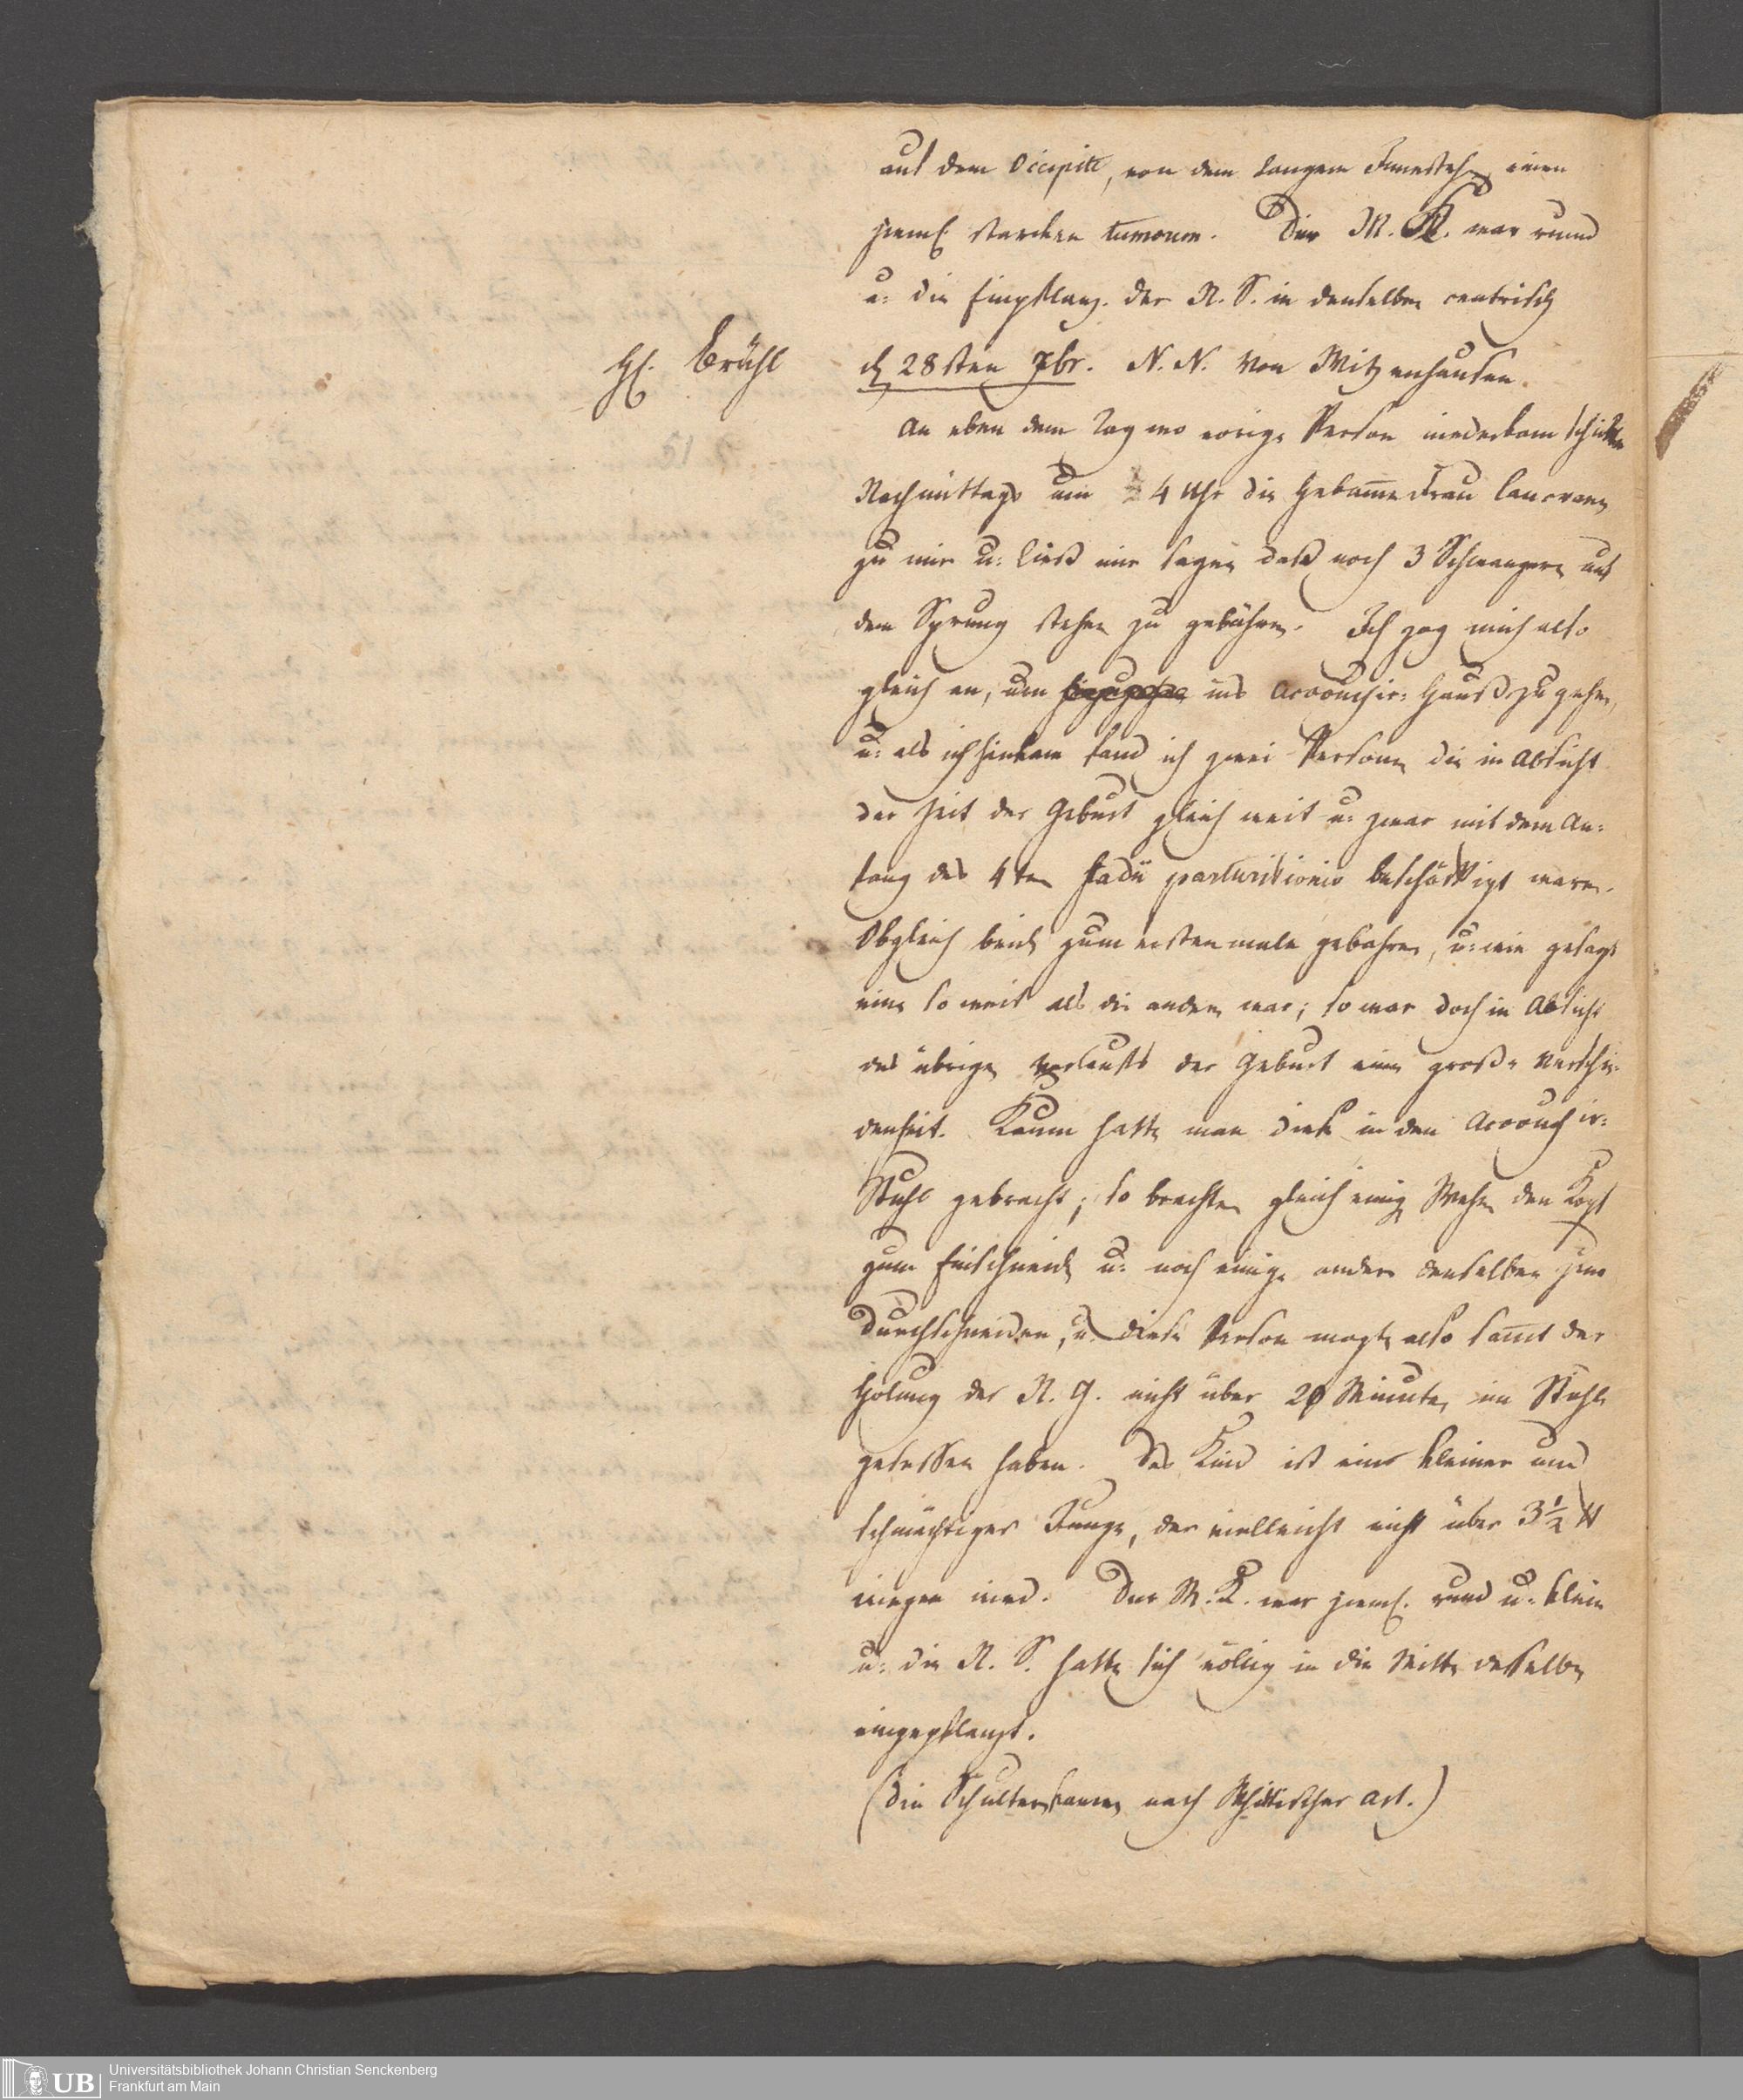 auf dem Occipite, von dem langem Innestehen einen
zieml. starcken tumorem. Der M. K. war rund
u: die Einpflanz. der N. S. in denselben centrisch
H. Brühl
d 28sten 7br. N. N. von Witzenhausen.
An eben dem Tag wo vorige Person niederkam schickte
Nachmittags um 4 Uhr die Hebam̅e Frau
zu mir u: ließ mir sagen daß noch 3 Schwangere auf
dem Sprung stehen zu gebähren. Ich zog mich also
gleich an, um hinzugehen ins Accouchir: Hauß zu gehen,
u: als ich hinkam fand ich zwei Personen die in Absicht
der Zeit der Geburt gleich weit u: zwar mit dem An:
fang des 4ten stadii parturitionis beschäftigt waren.
Obgleich beide zum erstenmale gebahren, u: wie gesagt
eine so weit als die andere war; so war doch in Absicht
des übrigen Verlaufts der Geburt eine große Verschie:
denheit. Kaum hatte man diese in den Accouchir:
Stuhl gebracht, so brachten gleich einige Wehen den Kopf
zum Einschneiden u: noch einige andere denselben zum
Durchschneiden, u: diese Person mogte also sam̅t der
Holung der N. G. nicht über 20 Minuten im Stuhle
gesessen haben. Das Kind ist ein kleiner und
schmächtiger Junge, der vielleicht nicht über 3 1/2 ℔
wiegen wird. Der M. K. war zieml. rund u: klein
u: die N. S. hatte sich völlig in die Mitte desselben
eingepflanzt.
(die Schultern kamen nach Art.)
Universitätsbibliothek Johann Christian Senckenberg
Frankfurt am Main
UB